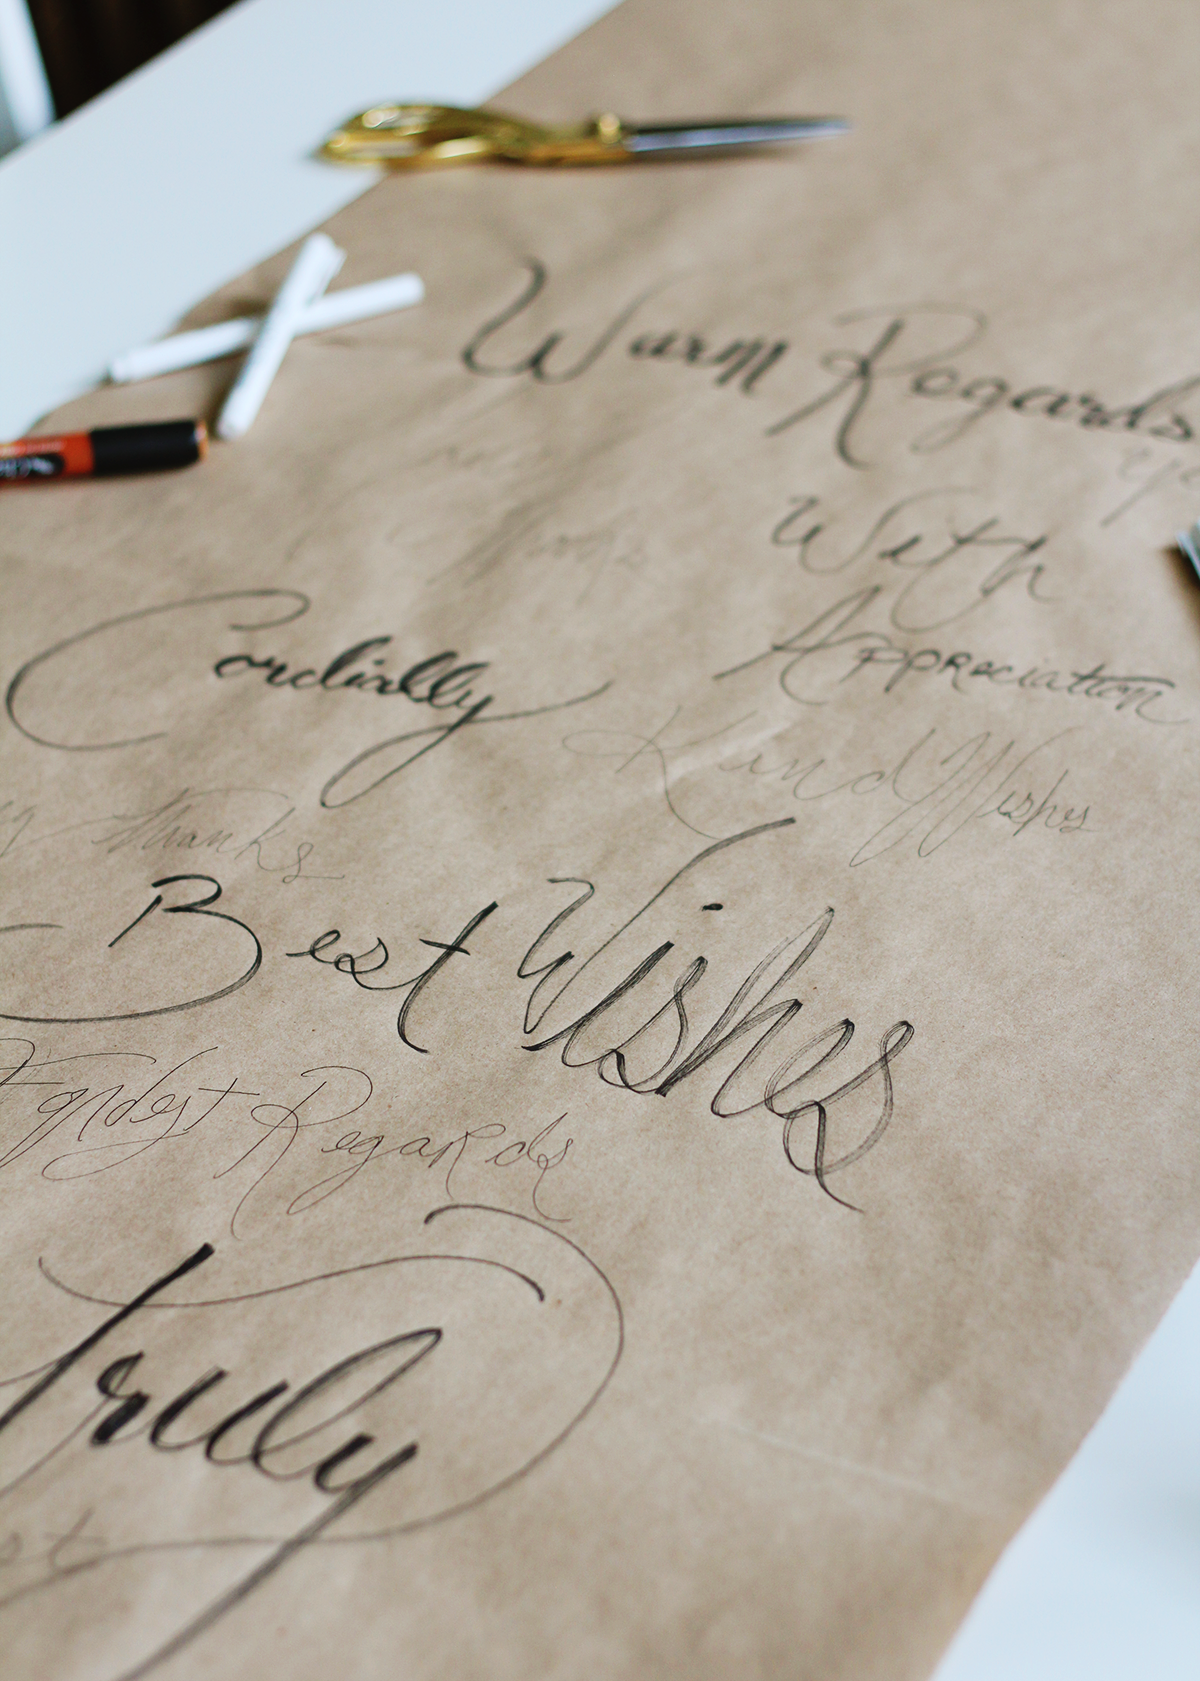 Warm Regards
With
Appreciation
Cordially
Kind Wishes
Thanks
Best Wishes
Fondest Regards
Truly